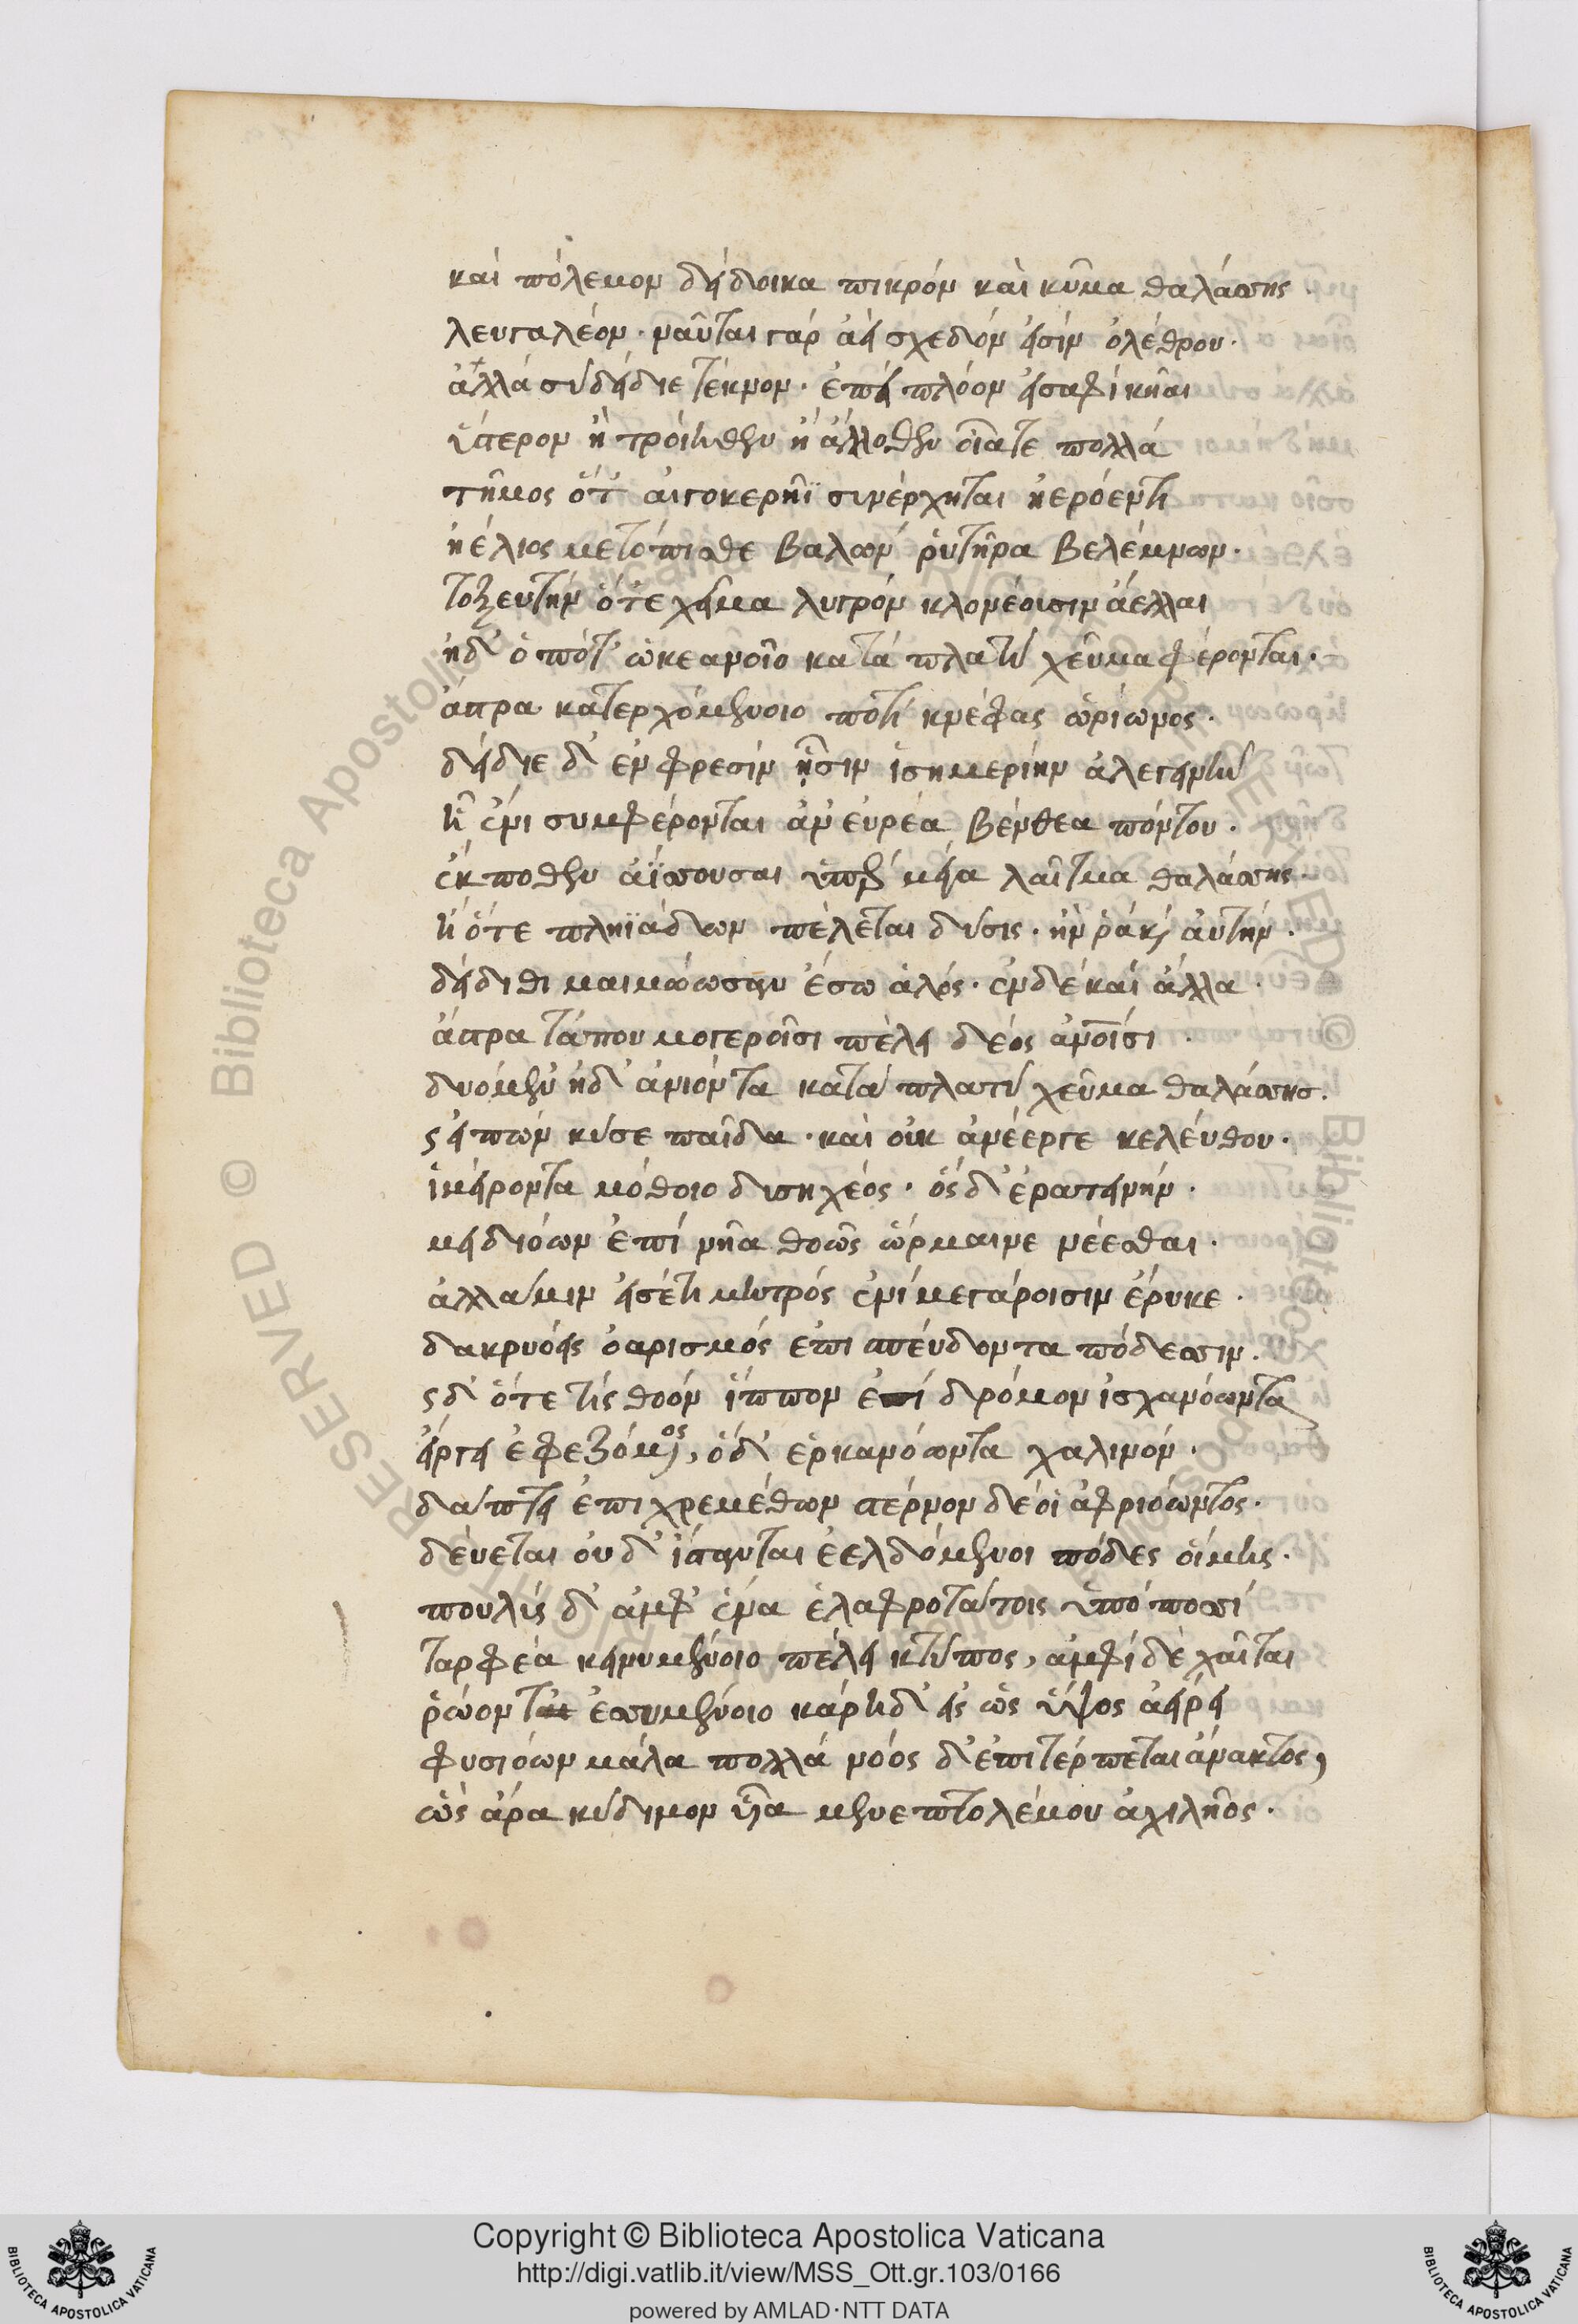 καὶ πόλεμον δείδοικα πικρὸν καὶ κῦμα θαλάσσης.
λευγαλέον· ναῦται γὰρ ἀεὶ σχεδόν εἰσιν ὀλέθρου·
ἀλλὰ σὺ δείδιε τέκνον· ἐπεὶ πλόον εἰσαφίκηαι
ὕστερον ἢ τροίηθεν ἢ ἄλλοθεν οἷάτε πολλὰ
τῆμος ὅτ' αἰγοκερῆϊ συνέρχηται ἠερόεντι
ἠέλιος μετόπισθε βαλὼν ῥυτῆρα βελέμνων·
τοξευτὴν ὅτε χεῖμα λυγρὸν κλονέουσιν ἄελλαι
ἠδ' ὁπότ' ὠκεανοῖο κατὰ πλατὺ χεῦμα φέρονται·
ἄστρα κατερχομένοιο ποτὶ κνέφας ὠρίωνος·
δείδιε δ' ἐν φρεσὶν ᾗσιν ἰσημερίην ἀλεγεινὴν
ᾗ ἔνι συμφέρονται ἀν' εὐρέα βένθεα πόντου·
ἔκποθεν ἀΐσσουσαι ὑπὲρ μέγα λαῖτμα θαλάσσης·
ἢ ὅτε πληϊάδων πέλεται δύσις· ἣν ῥα καὶ αὐτὴν·
δείδιθι μαιμώωσαν ἔσω ἁλός· ἐνδὲ καὶ ἄλλα·
ἄστρα τάπου μογεροῖσι πέλει δέος ἀνοῖσι
δυόμεν' ἠδ' ἀνιόντα κατὰ πλατὺ χεῦμα θαλάσσης.
ὣς εἰπὼν κύσε παῖδα· καὶ οὐκ ἀνέεργε κελεύθου·
ἱμείροντα μόθοιο δυσηχέος· ὃς δ' ἐρατεινὴν·
μειδιόων ἐπὶ νῆα θοῶς ὥρμαινε νέεσθαι·
ἀλλά μιν εἰσέτι μητρὸς ἐνὶ μεγάροισιν ἔρυκε·
δακρυόεις ὀαρισμὸς ἐπισπεύδοντα πόδεσσιν.
ὡς δ' ὅτε τίς θοὸν ἵππον ἐπὶ δρόμον ἰσχανόωντα
εἴργει ἐφεζόμενος, ὁ δ' ἐρυκανόωντα χαλινὸν·
δάπτει ἐπιχρεμέθων στέρνον δέ οἱ ἀφριόωντος·
δεύεται οὐδ' ἵστανται ἐελδόμενοι πόδες οἴμης·
πουλὺς δ' ἀμφ' ἕνα ἐλαφροτάτοις ὑπὸ ποσσὶ
ταρφέα κινυμένοιο πέλει κτύπος, ἀμφὶ δὲ χαῖται
ῥώοντ' ἐσσυμένοιο κάρη δ' εἰς ὡς ὕψος ἀείρει
φυσιόων μάλα πολλὰ νόος δ' ἐπιτέρπεται ἄνακτος,
ὣς ἄρα κύδιμον υἷα μενεπτολέμου ἀχιλῆος·
Copyright © Biblioteca Apostolica Vaticana
http://digi.vatlib.it/view/MSS_Ott.gr.103/0166
powered by AMLAD·NTT DATA